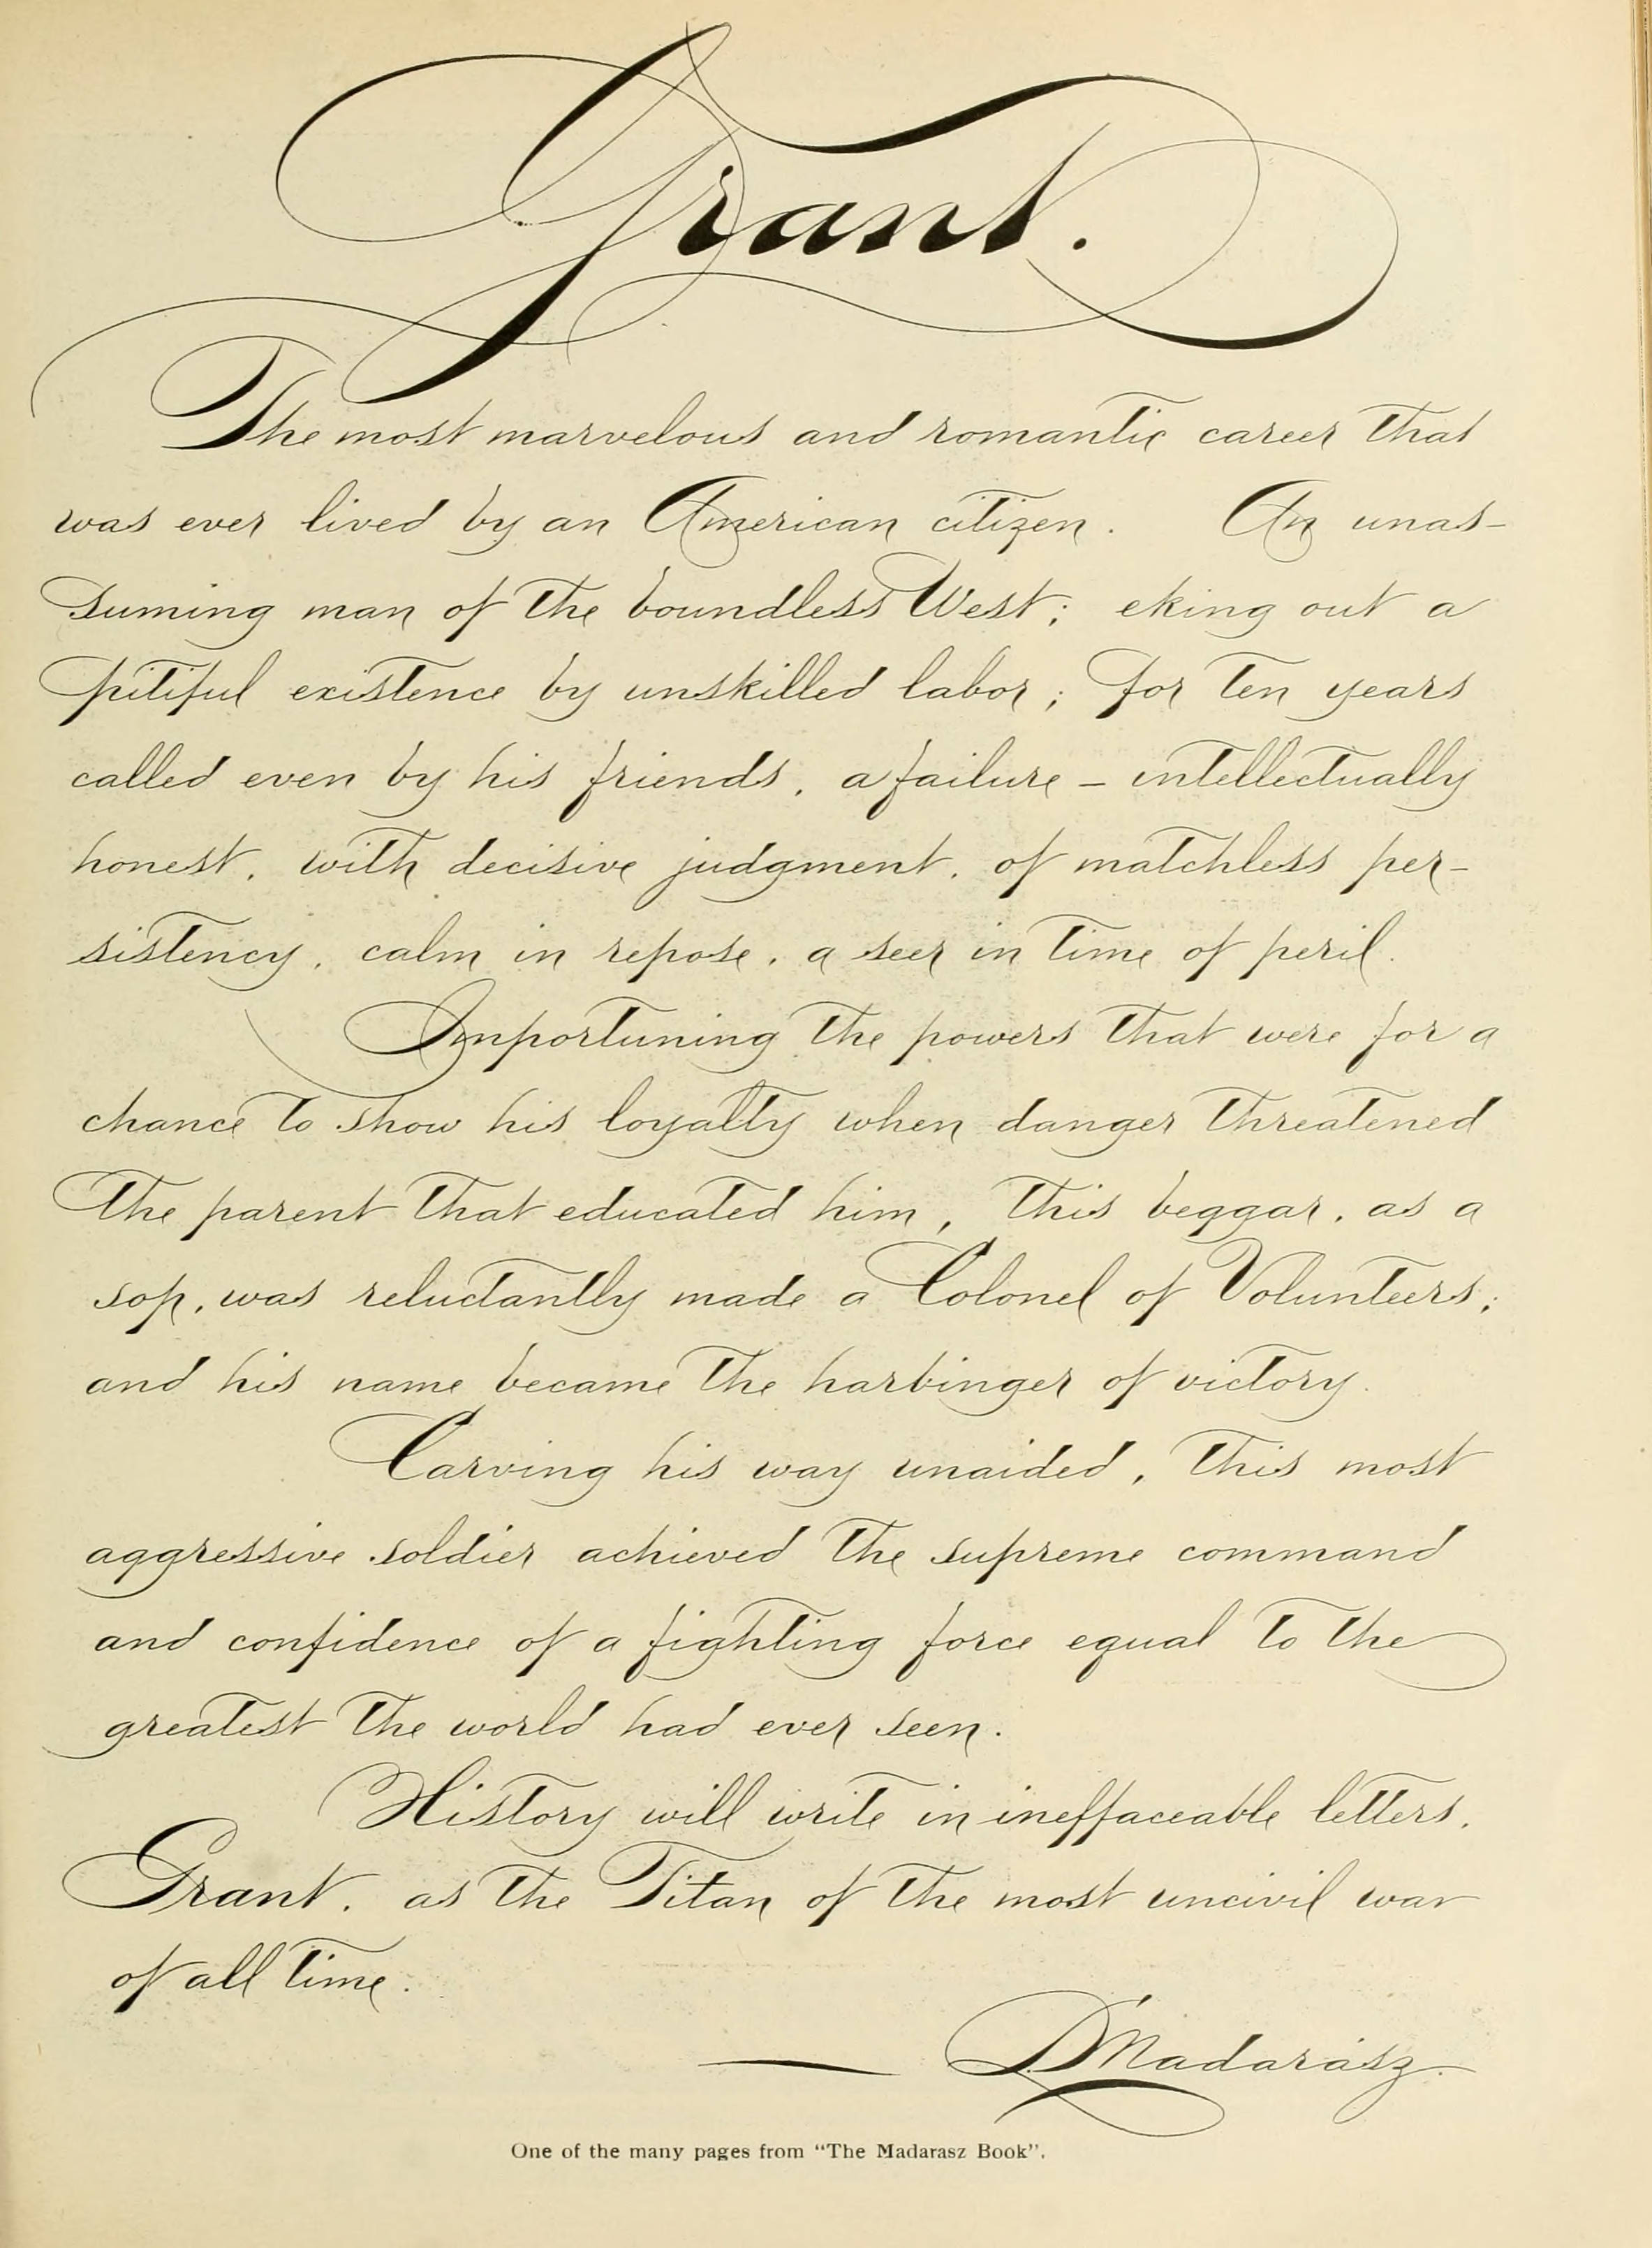 Grant.
The most marvelous and romantic career that
was ever lived by an American citizen. An unas-
suming man of the boundless West; eking out a
pitiful existence by unskilled labor; for ten years
called even by his friends, a failure - intellectually
honest, with decisive judgment, of matchless per-
sistency, calm in repose, a seer in time of peril.
Importuning the powers that were for a
chance to show his loyalty when danger threatened
the parent that educated him, this beggar, as a
sop, was reluctantly made a Colonel of Volunteers;
and his name became the harbinger of victory.
Carving his way unaided, this most
aggressive soldier achieved the supreme command
and confidence of a fighting force equal to the
greatest the world had ever seen.
History will write in ineffaceable letters,
Grant, as the Titan of the most uncivil war
of all time.
— L Madarász.
One of the many pages from "The Madarasz Book".